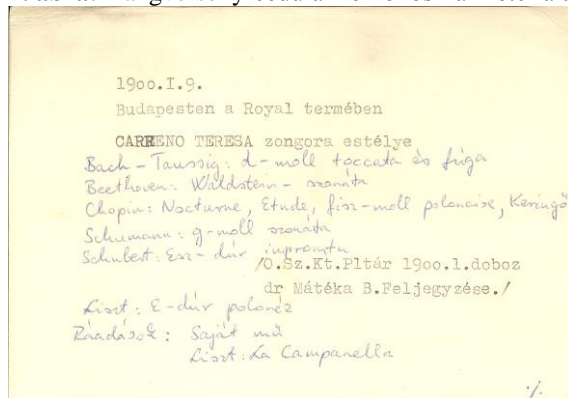 1900.I.9.
Budapesten a Royal termében
CARRENO TERESA zongora estélye
Bach - Taussig: d-moll toccata és fúga
Beethoven: Waldstein - szonáta
Chopin: Nocturne, Etude, fisz-moll polonaise, Keringő
Schumann: g-moll szonáta
Schubert: Esz-dúr impromtu
/O.Sz.Kt.Pltár 1900.1.doboz
dr Mátéka B.Feljegyzése./
Liszt: E-dúr polonéz
Ráadások: Saját mű
Liszt: La Campanella
./.